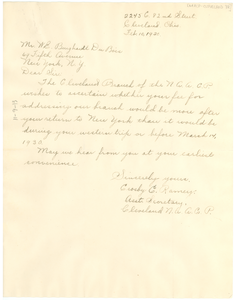 2243 E. 82nd Street
Cleveland, Ohio
Feb. 10, 1921
Mr. W.E. Burghardt Du Bois
69 Fifth Avenue
New York, N.Y.
Dear Sir:
The Cleveland Branch of the N.A.A.C.P.
wishes to ascertain whether your fee for
addressing our branch would be more after
your return to New York than it would be
during your western trip or before March 14,
1921.
May we hear from you at your earliest
convenience.
Sincerely yours,
Crosby C. Ramsey
Asst. Secretary,
Cleveland N.A.A.C.P.